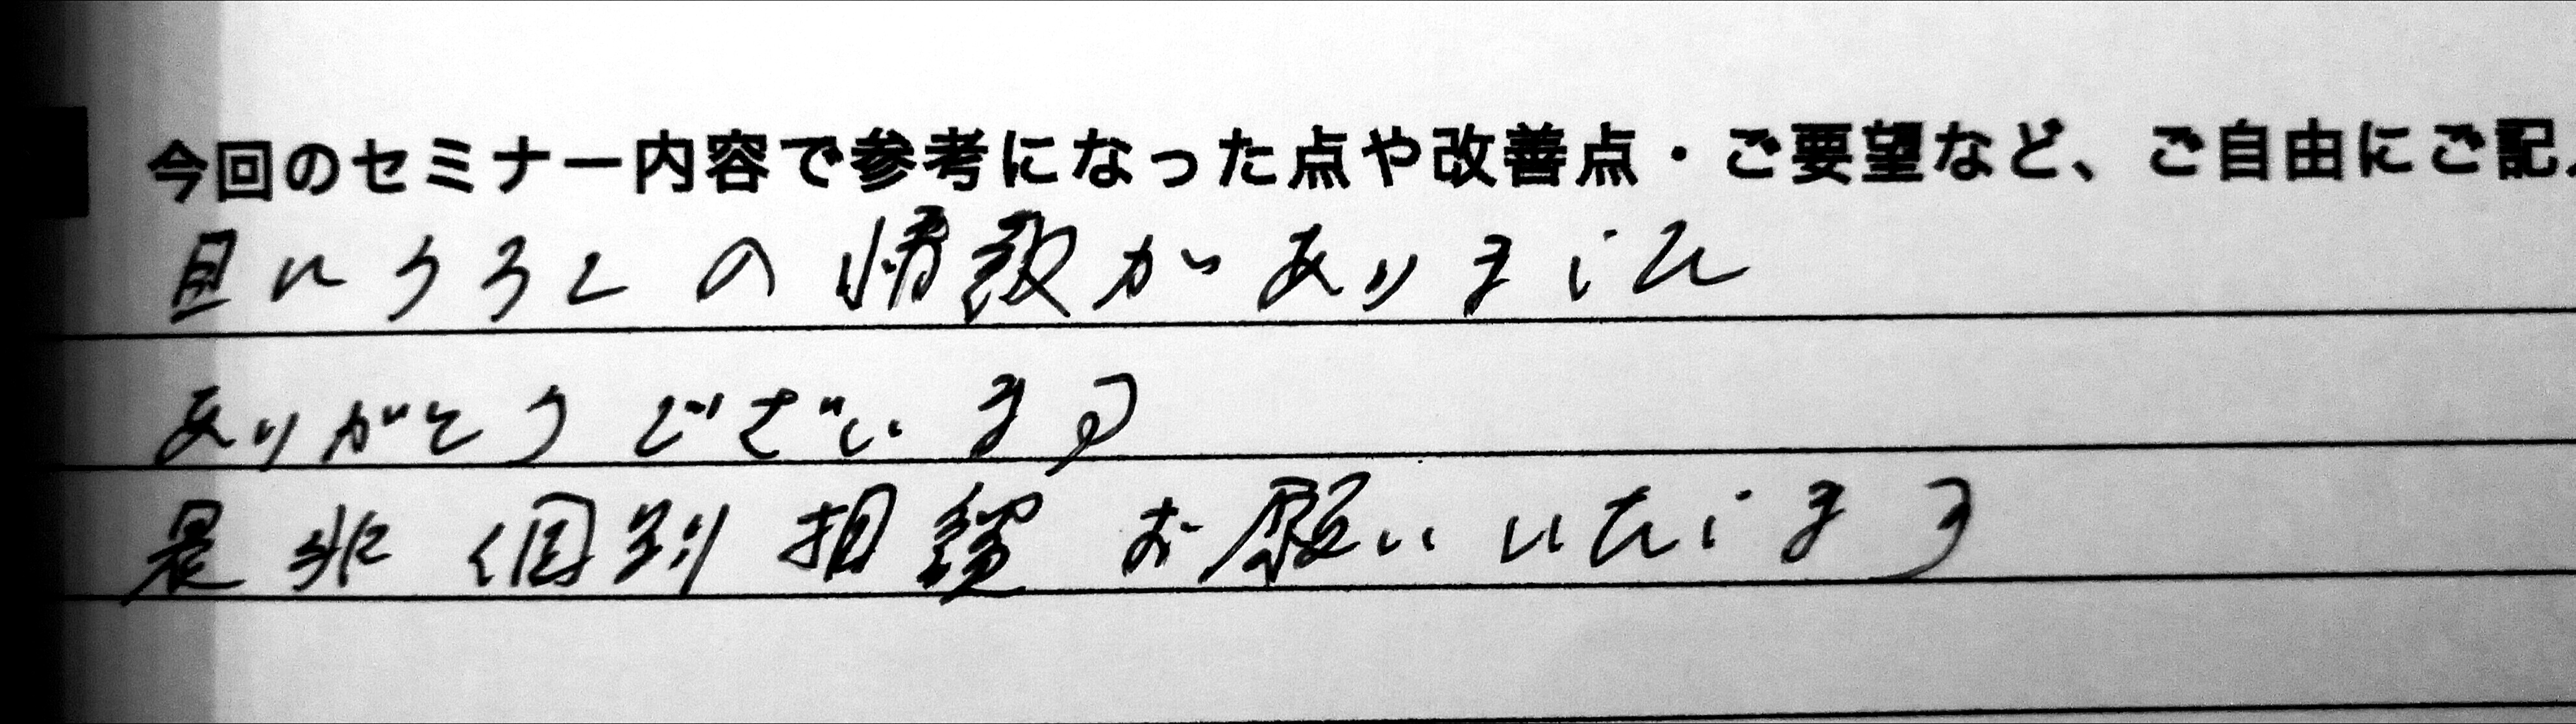 今回のセミナー内容で参考になった点や改善点・ご要望など、ご自由にご記
目にうろこの情報がありました
ありがとうございます
是非個別相談お願いいたします